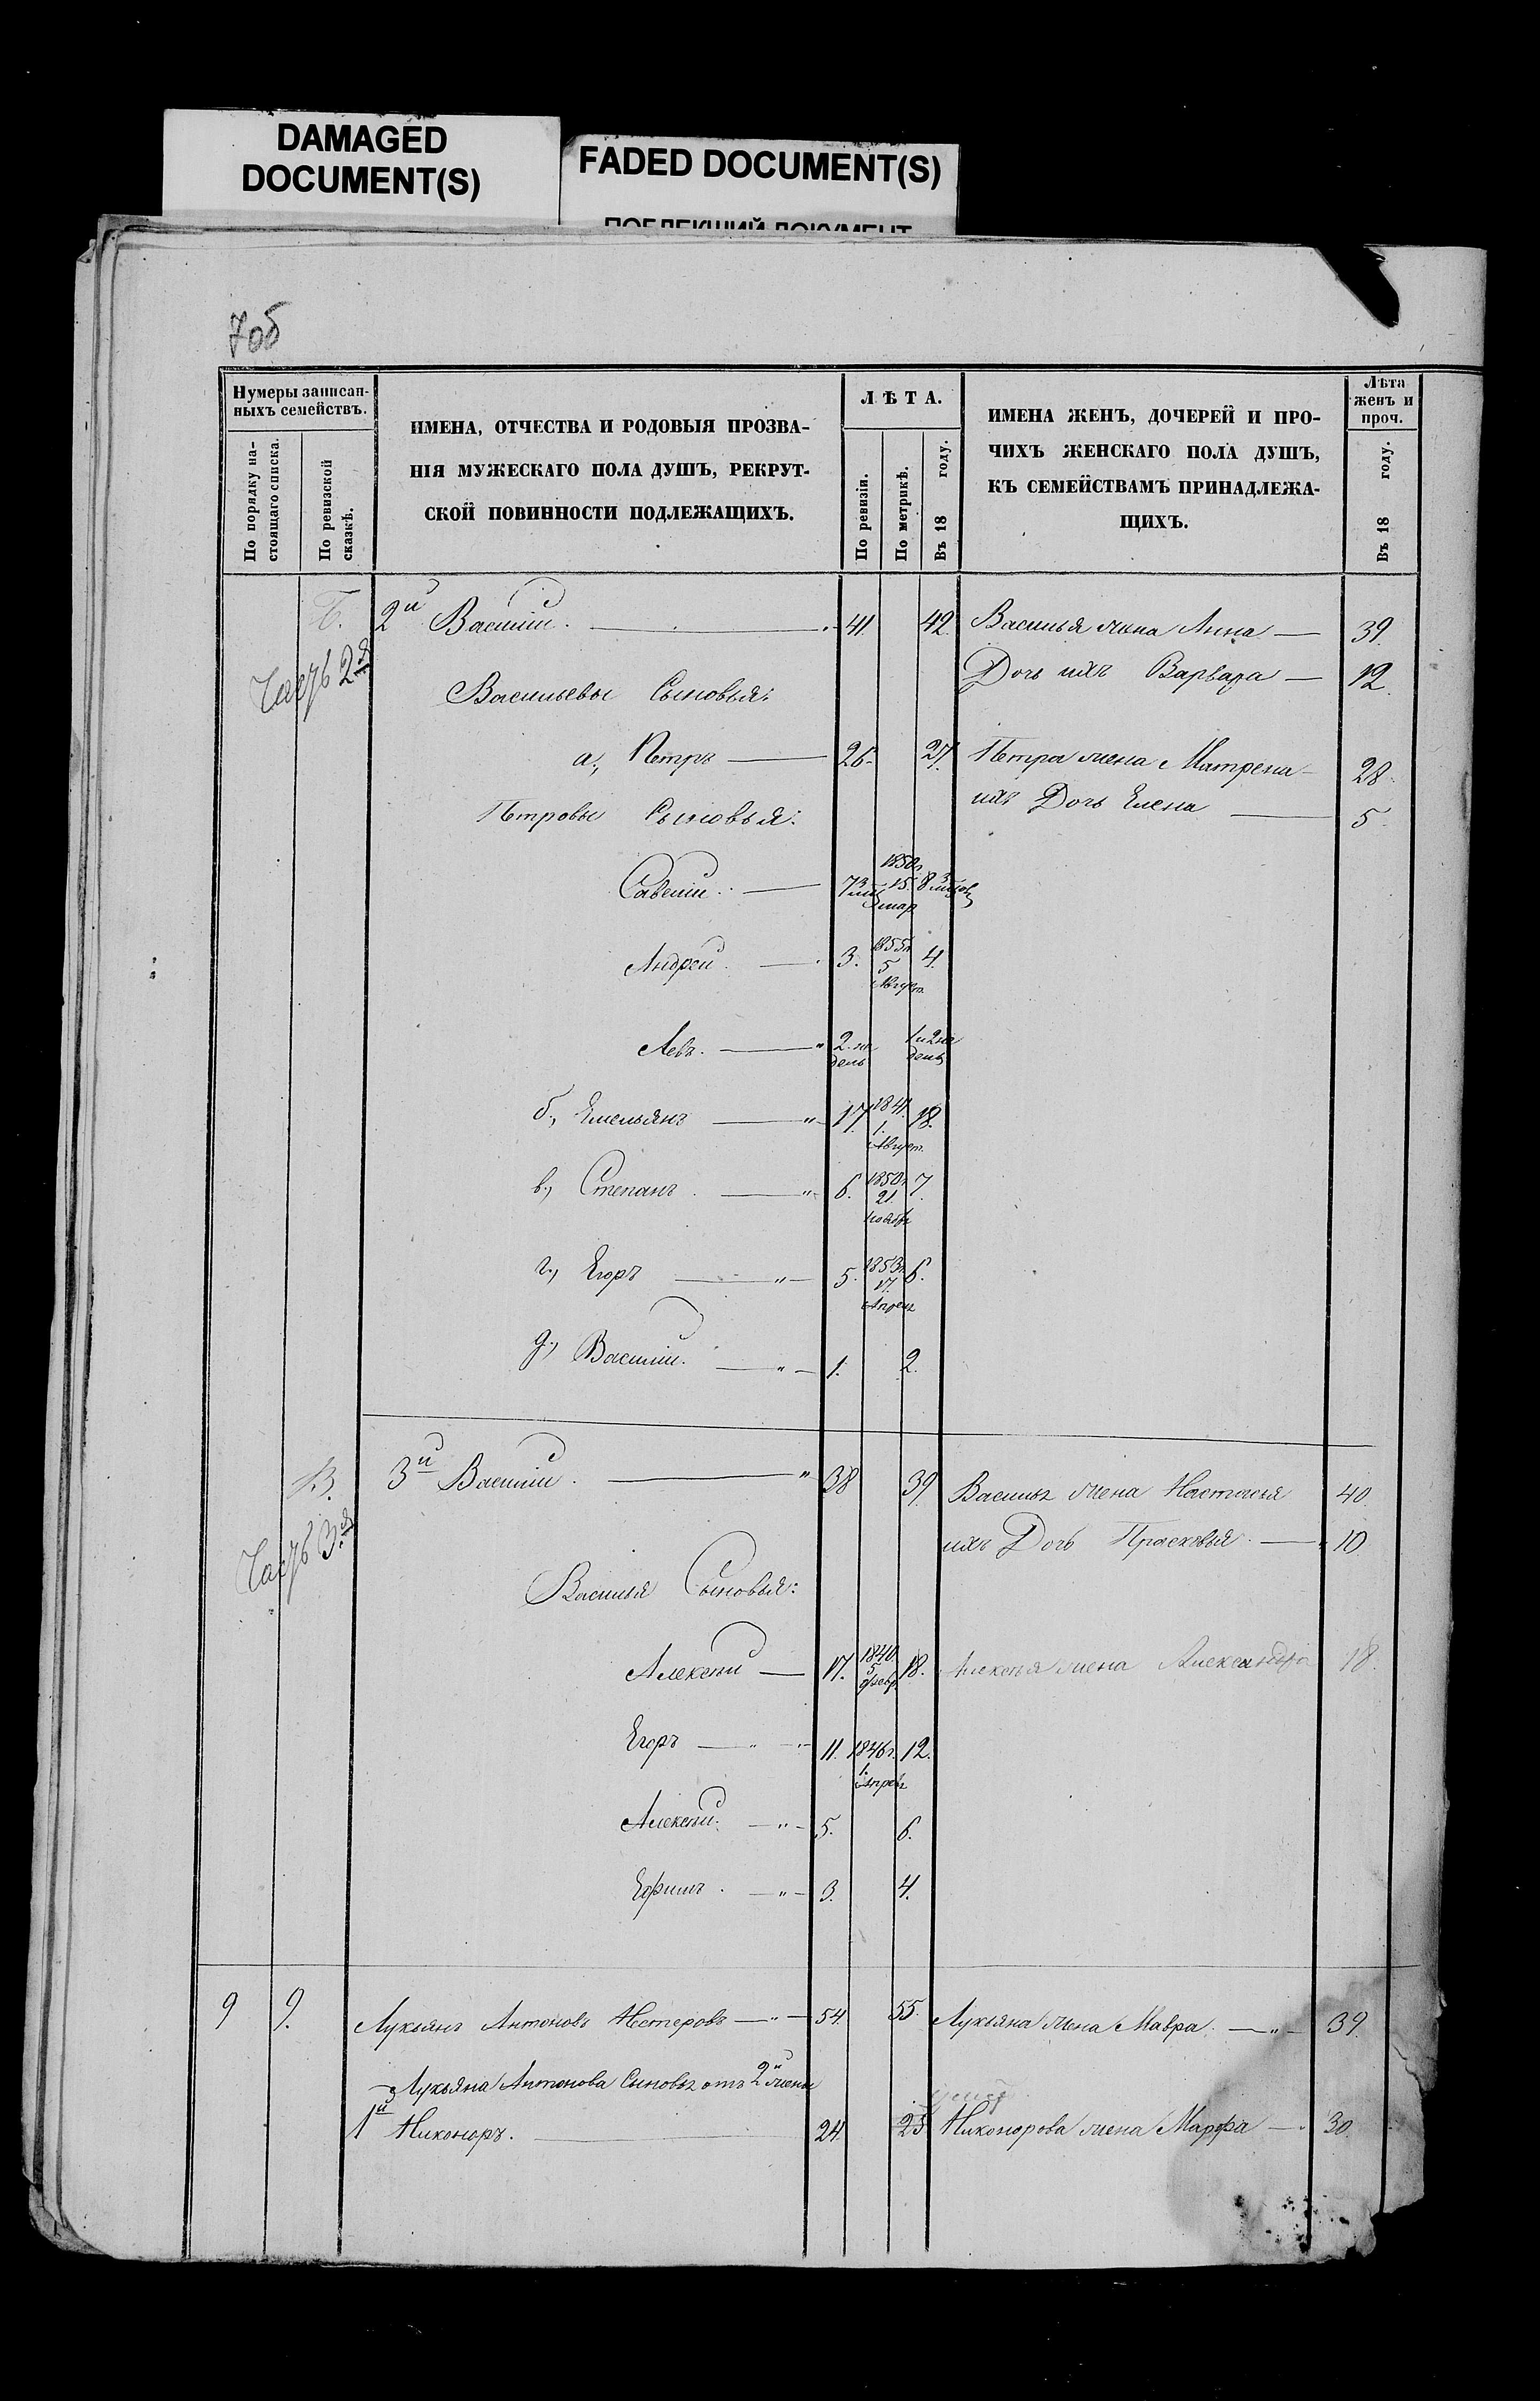 DAMAGED
DOCUMENT(S)
FADED DOCUMENT(S)
ПОБЛЕКШИЙ ДОКУМЕНТ
7об
Нумеры записан-
ныхъ семействъ.
По порядку на-
стоящаго списка.
По ревизской
сказкѣ.
ИМЕНА, ОТЧЕСТВА И РОДОВЫЯ ПРОЗВА-
НІЯ МУЖЕСКАГО ПОЛА ДУШЪ, РЕКРУТ-
СКОЙ ПОВИННОСТИ ПОДЛЕЖАЩИХЪ.
ЛѢТА.
По ревизіи.
По метрикѣ.
Въ 18 году.
ИМЕНА ЖЕНЪ, ДОЧЕРЕЙ И ПРО-
ЧИХЪ ЖЕНСКАГО ПОЛА ДУШЪ,
КЪ СЕМЕЙСТВАМЪ ПРИНАДЛЕЖА-
ЩИХЪ.
Лѣта
женъ и
проч.
Въ 18 году.
Б. 2й Василій. 41. 42. Василья жена Анна 39.
Часть 2я
Дочь ихъ Варвара 12.
Васильевы Сыновья:
а, Петръ 26. 27. Петра жена Матрена 28.
ихъ Дочь Елена 5.
Петровы Сыновья:
Савелій. 7 1850г. 15 мар 8
Андрей. 3. 1855г. 5 Август. 4.
Левъ. 2. не дель 1 и 2 не дель
б, Емельянъ 17. 1841. 1. Август. 18.
в, Степанъ. 6. 1850г. 21. Ноября 7.
г, Егоръ 5. 1853г. 17. Апрел 6.
д, Василій. 1. 2.
В. 3й Василій. 38 39 Василья жена Настасья 40.
Часть 3я
ихъ Дочь Прасковья. 10.
Василья Сыновья:
Алексѣй 17. 1840. 5 февр. 18. Алексѣя жена Александра 18.
Егоръ 11. 1846г. 1. Апрел 12.
Алексѣй. 5. 6.
Ефимъ. 3. 4.
9 9. Лукьянъ Антоновъ Нестеровъ 54. 55. Лукьяна жена Мавра. 39.
Лукьяна Антонова Сыновья отъ 2й жены
1й Никоноръ. 24. 25 Никонорова жена Марфа 30.